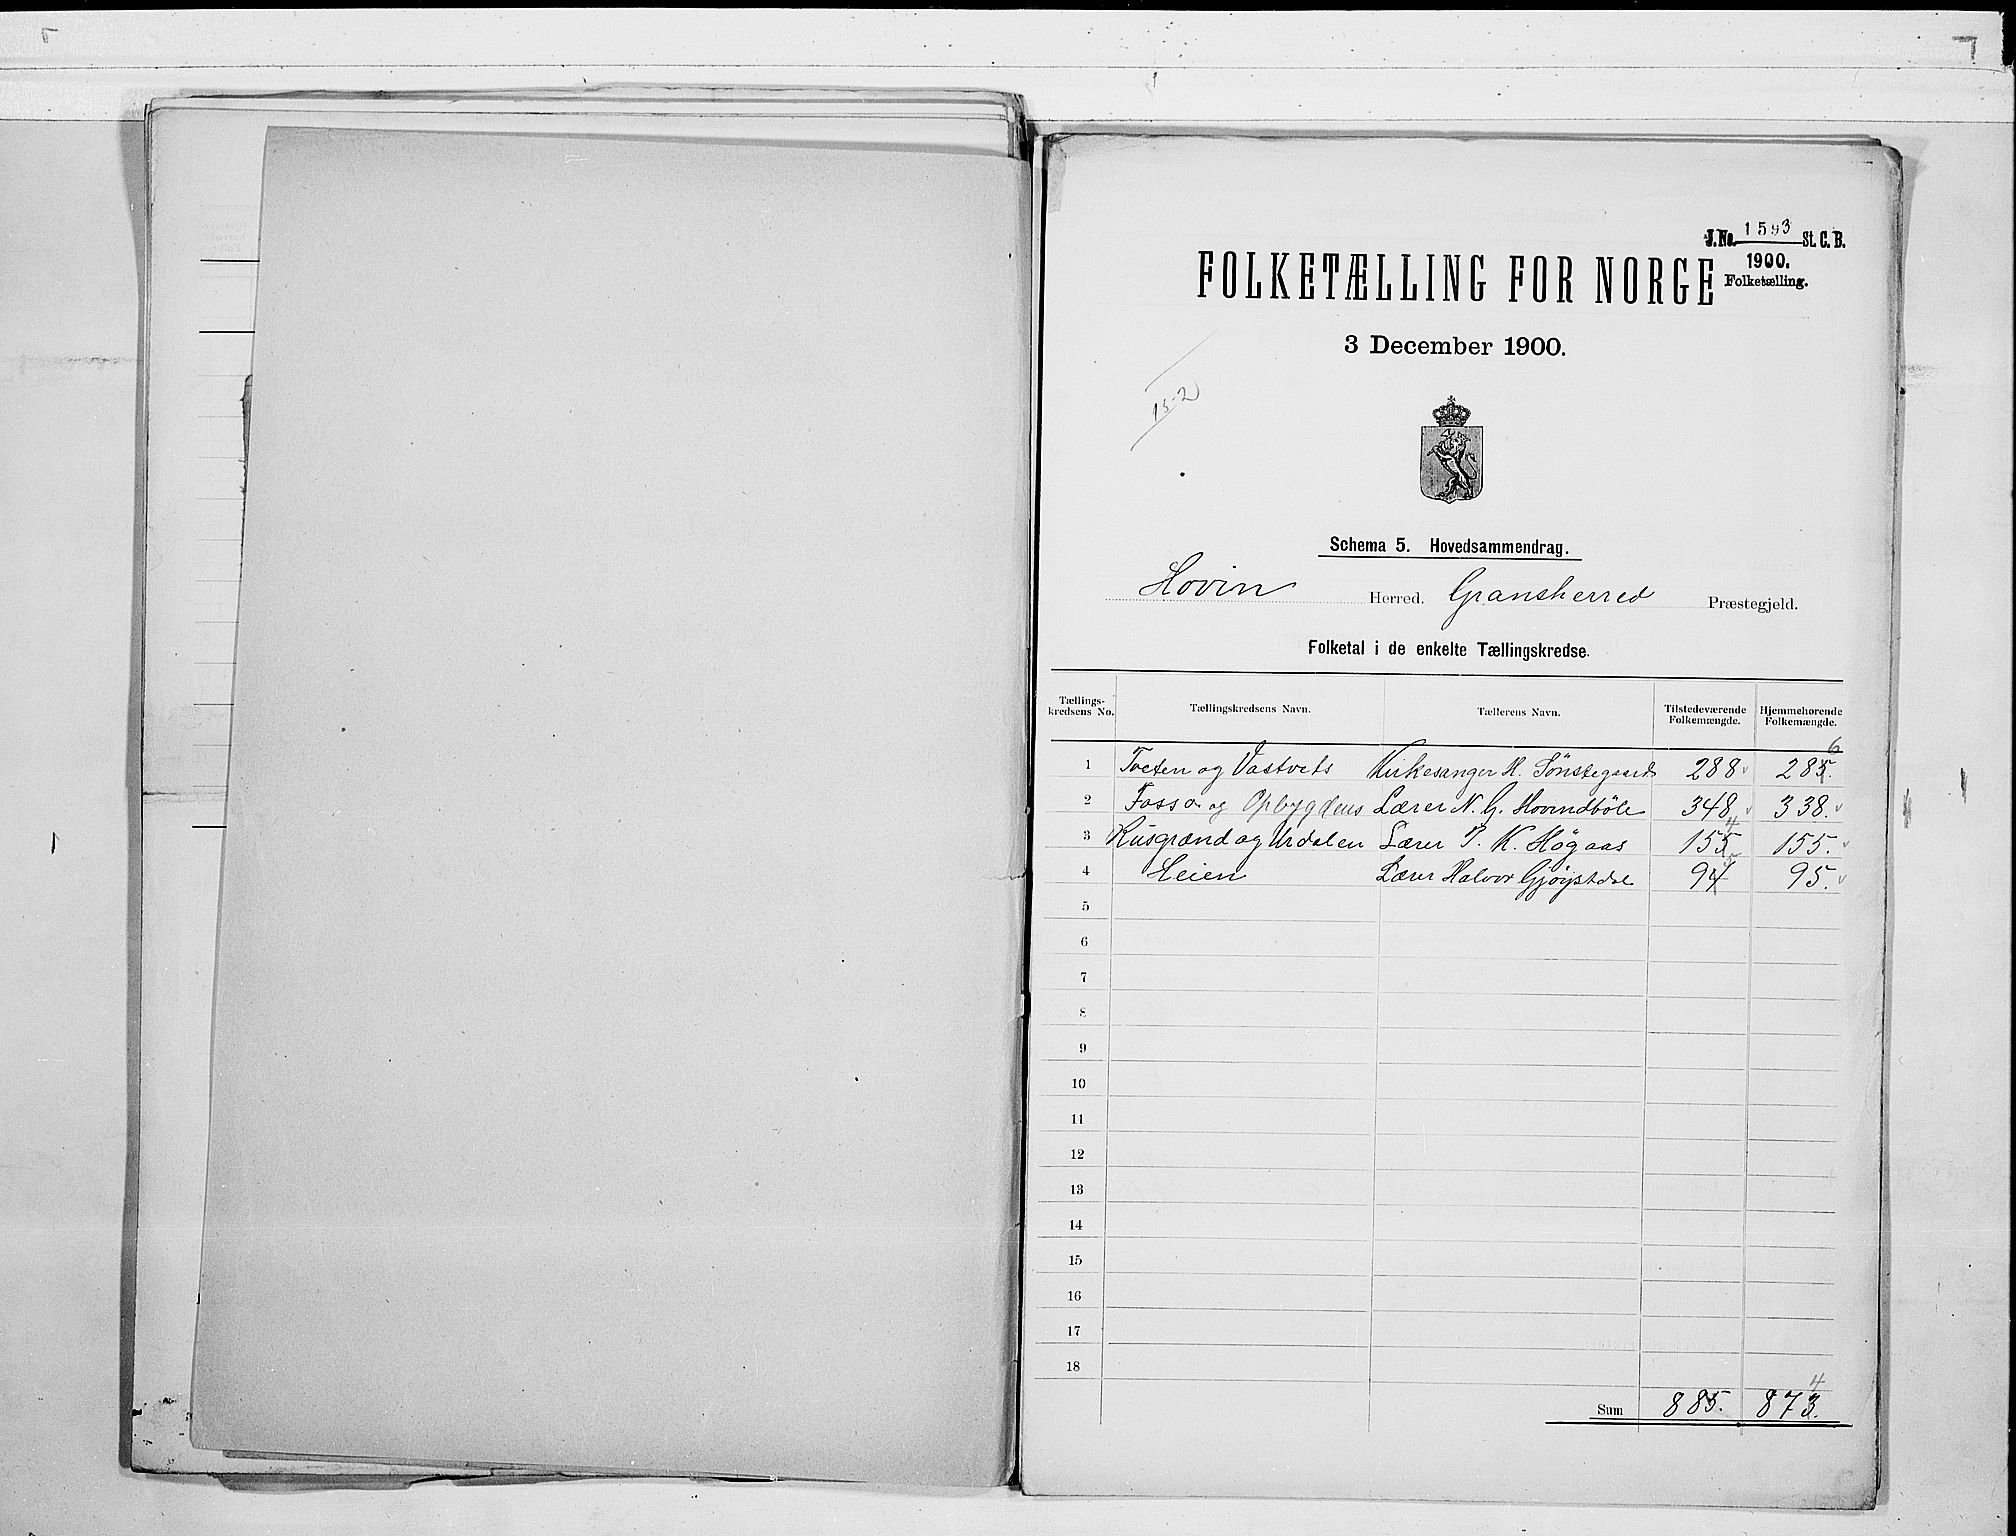 J. No. 1593 St. C. B.
1900.
Folketælling.
FOLKETÆLLING FOR NORGE
3 December 1900.
15-2
Schema 5. Hovedsammendrag.
Hovin Herred. Gransherred Præstegjeld.
Folketal i de enkelte Tællingskredse.
Tællings-kredsens No. Tællingskredsens Navn. Tællerens Navn. Tilstedeværende Folkemængde. Hjemmehørende Folkemængde.
6
1 Tveten og Vastvets Kirkesanger H. Sønstegaard 288 285.
2 Fosso og Opbygdens Lærer N. G. Hovindbøle 348 338.
4
3 Rusgrænd og Urdalen Lærer T. K. Høgaas 155 155.
5
4 Heien Lærer Halvor Gjøystdal 94 95.
5
6
7
8
9
10
11
12
13
14
15
16
17
18
4
Sum 885. 873.